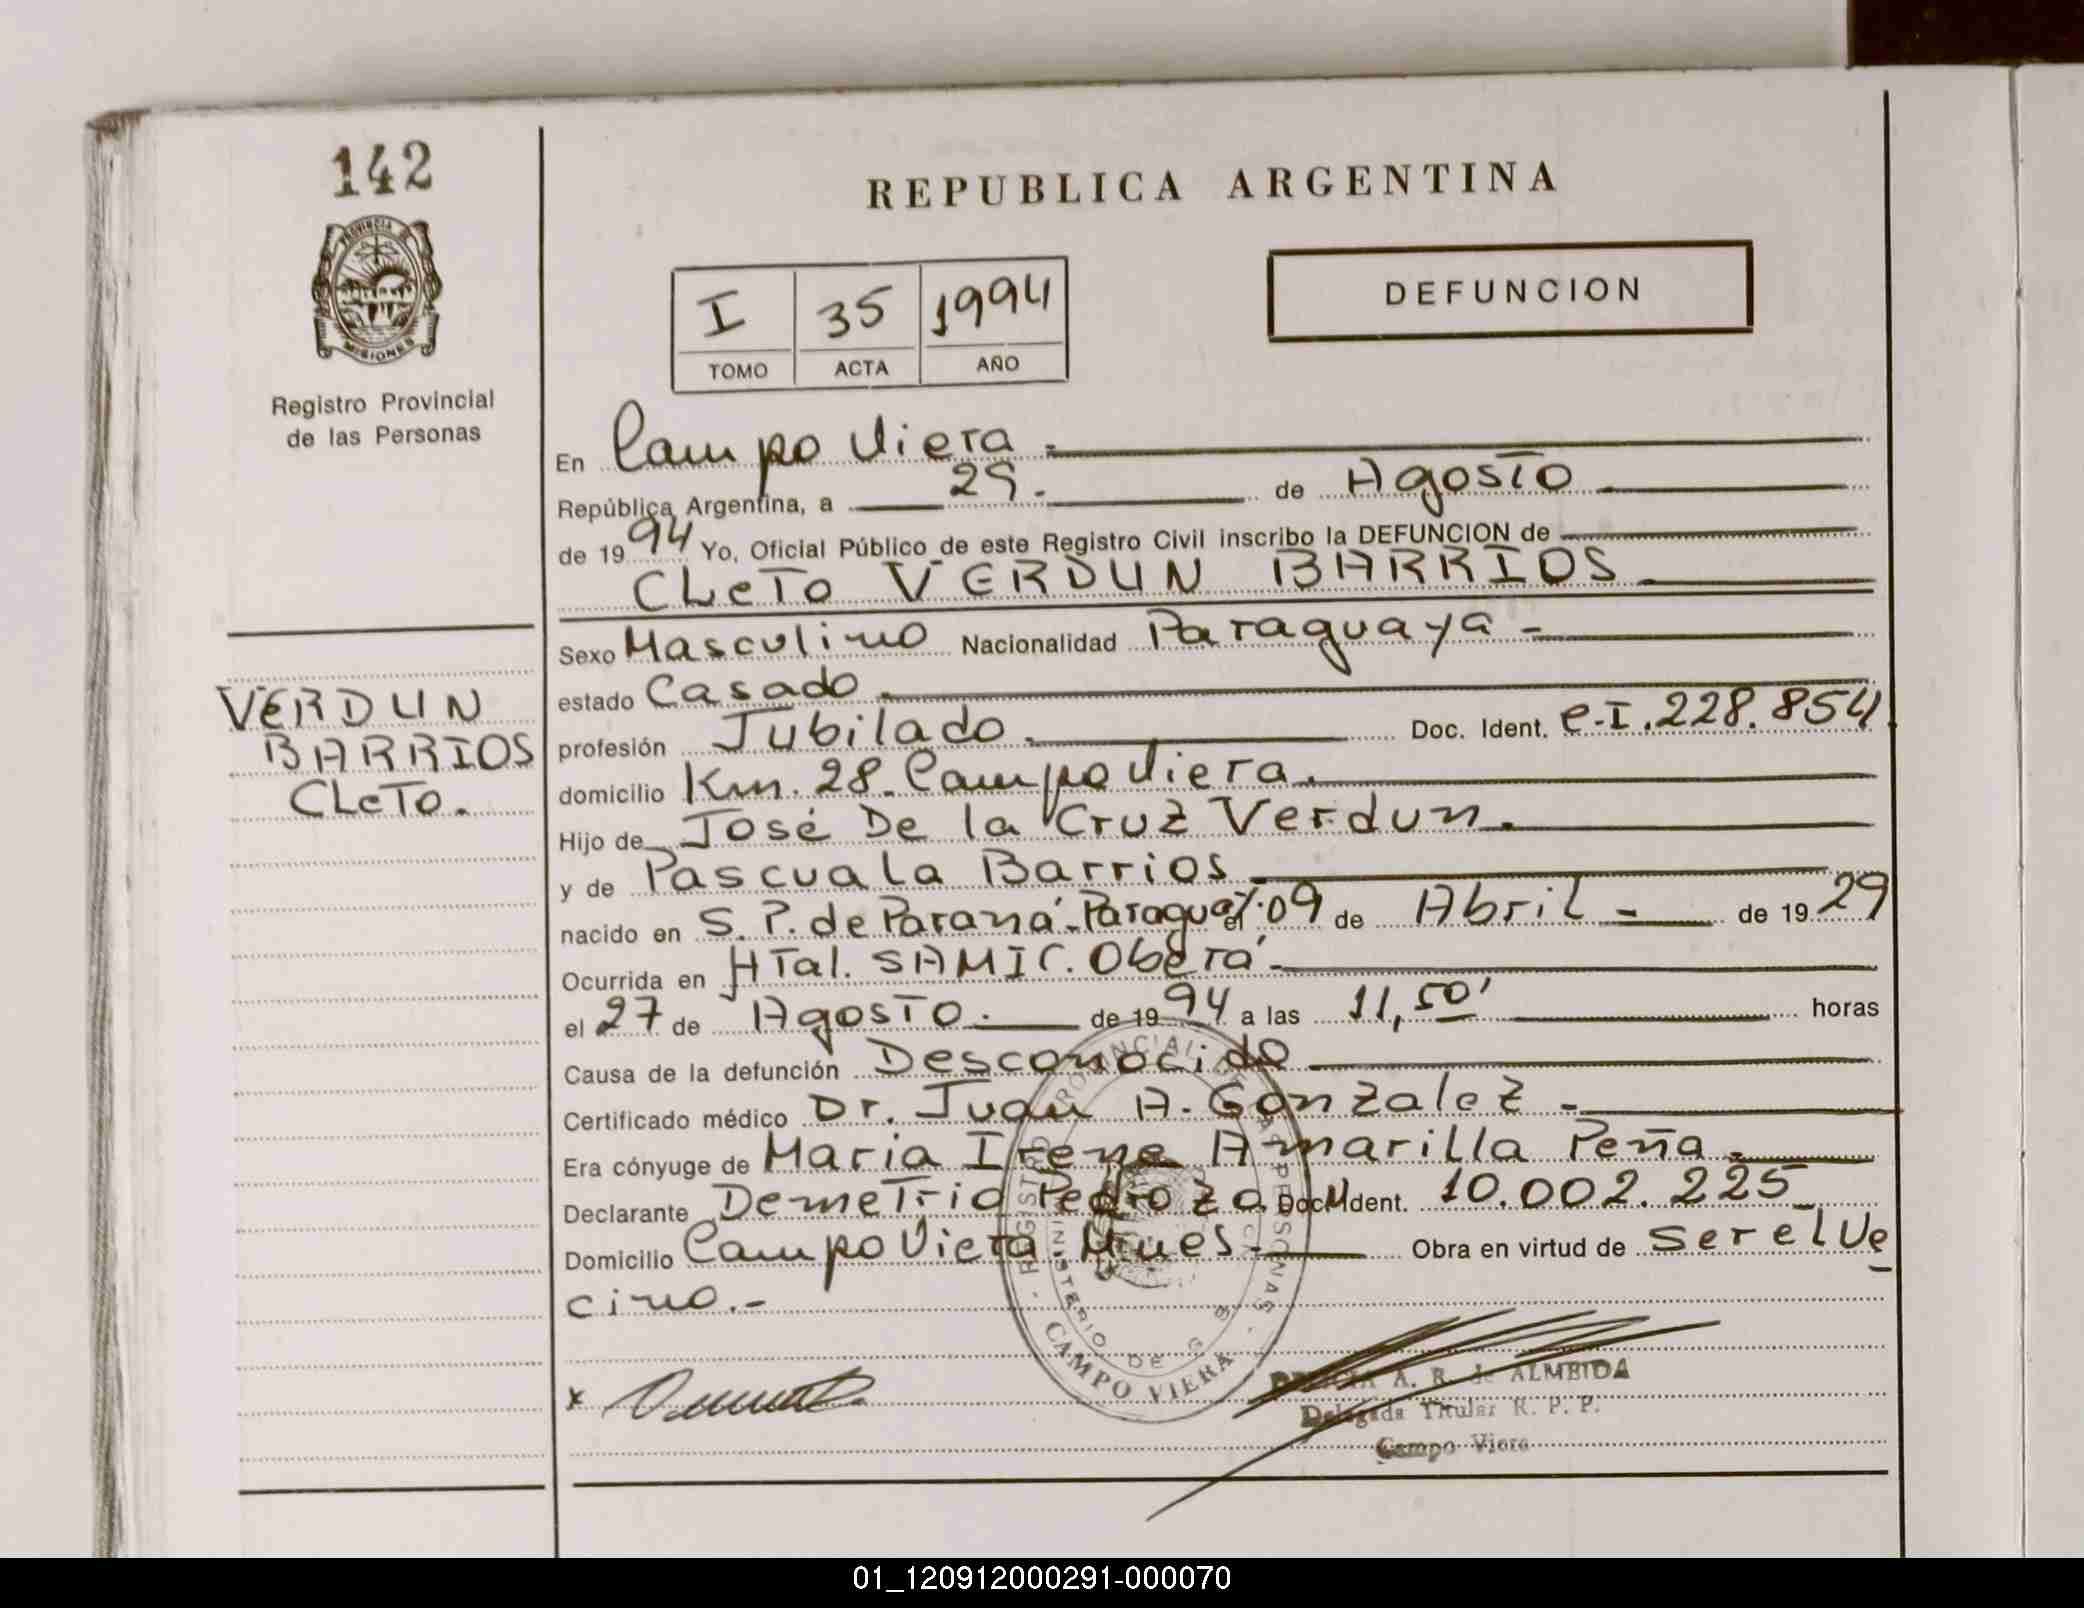 142
PROVINCIA DE
MISIONES
Registro Provincial
de las Personas
VERDUN
BARRIOS
CLeTo.
REPUBLICA ARGENTINA
DEFUNCION
I 35 1994
TOMO ACTA AÑO
En Campo Viera.-
República Argentina, a 29.- de Agosto
de 1994 Yo, Oficial Público de este Registro Civil inscribo la DEFUNCION de
CLeTo VERDUN BARRIOS.
Sexo Masculino Nacionalidad Paraguaya-
estado Casado.
profesión Jubilado. Doc. Ident. C.I. 228.854
domicilio Km. 28. Campo Viera.
Hijo de José De la Cruz Verdun.
y de Pascuala Barrios
nacido en S.P. de Paraná-Paraguay. el 09 de Abril - de 1929
Ocurrida en HTal. SAMIC. Oberá-
el 27 de Agosto. de 1994 a las 11,50' horas
Causa de la defunción Desconocido
Certificado médico Dr. Juan A. Gonzalez-
Era cónyuge de Maria Irene Amarilla Peña.
Declarante Demetrio Pedrozo. Doc. Ident. M 10.002.225
Domicilio Campo Viera. Mnes.- Obra en virtud de ser el Ve
cino.-
REGISTRO PROVINCIAL DE LAS PERSONAS
MINISTERIO DE G
CAMPO VIERA
x
A. R. de ALMEIDA
Delegada Titular R. P. P.
Campo Viera
01_120912000291-000070